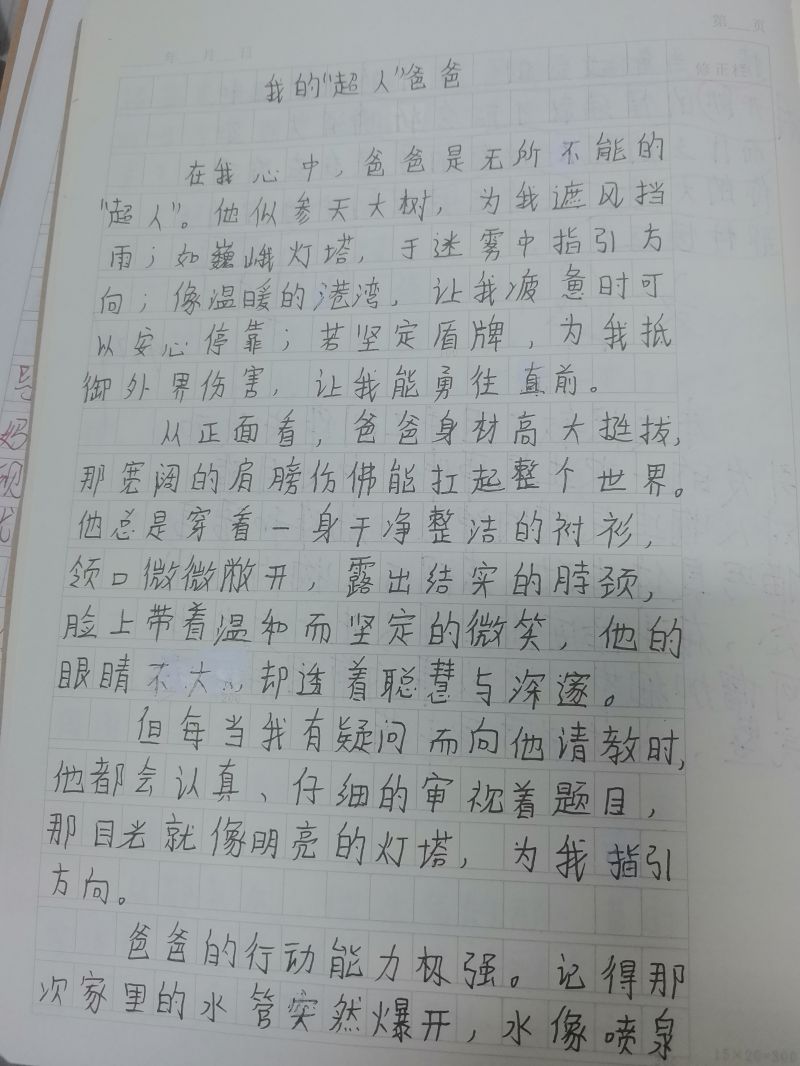 第 页
年 月 日
修正栏
我的“超人”爸爸
在我心中，爸爸是无所不能的
“超人”。他似参天大树，为我遮风挡
雨；如巍峨灯塔，于迷雾中指引方
向；像温暖的港湾，让我疲惫时可
以安心停靠；若坚定盾牌，为我抵
御外界伤害，让我能勇往直前。
从正面看，爸爸身材高大挺拔，
那宽阔的肩膀仿佛能扛起整个世界。
他总是穿着一身干净整洁的衬衫，
领口微微敞开，露出结实的脖颈，
脸上带着温和而坚定的微笑，他的
眼睛不大，却透着聪慧与深邃。
但每当我有疑问而向他请教时，
他都会认真、仔细的审视着题目，
那目光就像明亮的灯塔，为我指引
方向。
爸爸的行动能力极强。记得那
次家里的水管突然爆开，水像喷泉
15×20=300